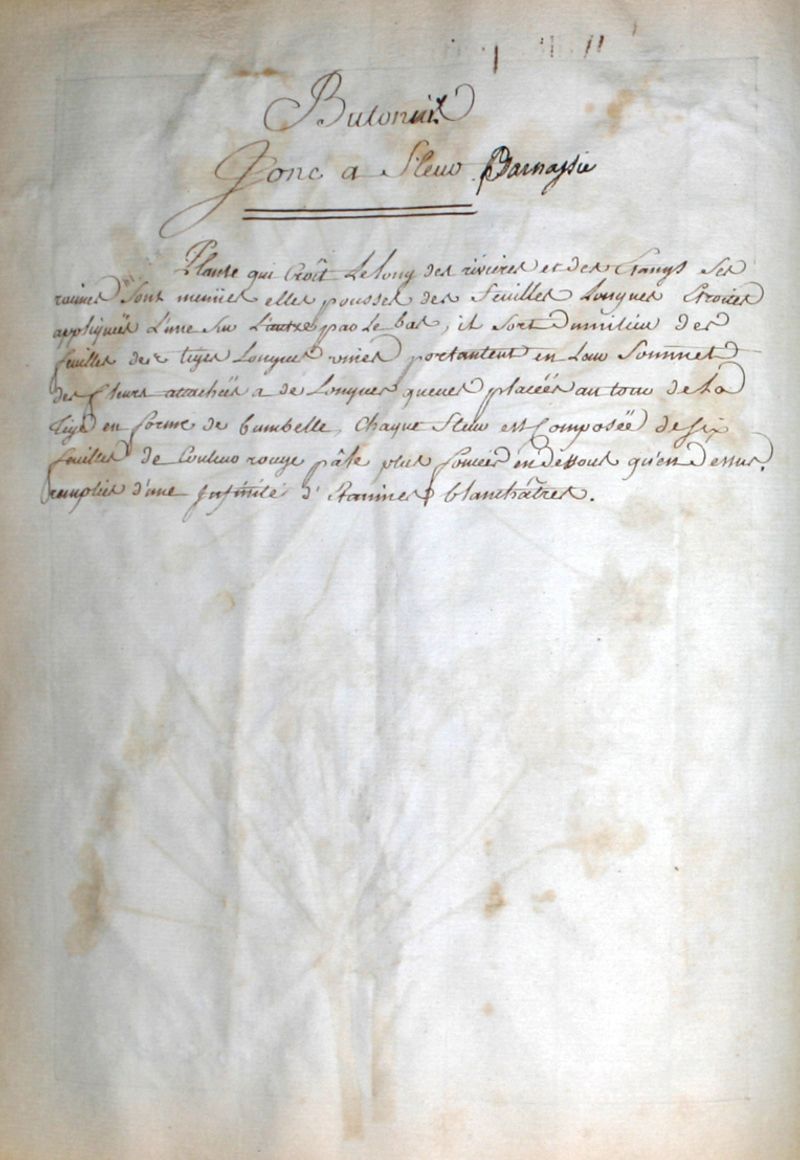 Butomus
Jonc a fleur Parnassie
Plante qui Croît Le long des rivieres et des Etangs Ses
racines Sont menües elles pousses des feuilles Longues Etroites
appliqueës L'une Sur L'autre par Le bas, il Sort du milieu des
feuilles des tiges Longues unies portantent en Leur Sommet
des fleurs attacheës a de Longues queues placeës autour de La
tige en forme de bumbelle, Chaque fleur est Composeë de Six
feuilles de Couleur rouge pâle plus foncées en dessous qu'en dessus,
remplies d'une Infinité d'Etamines blanchâtres.